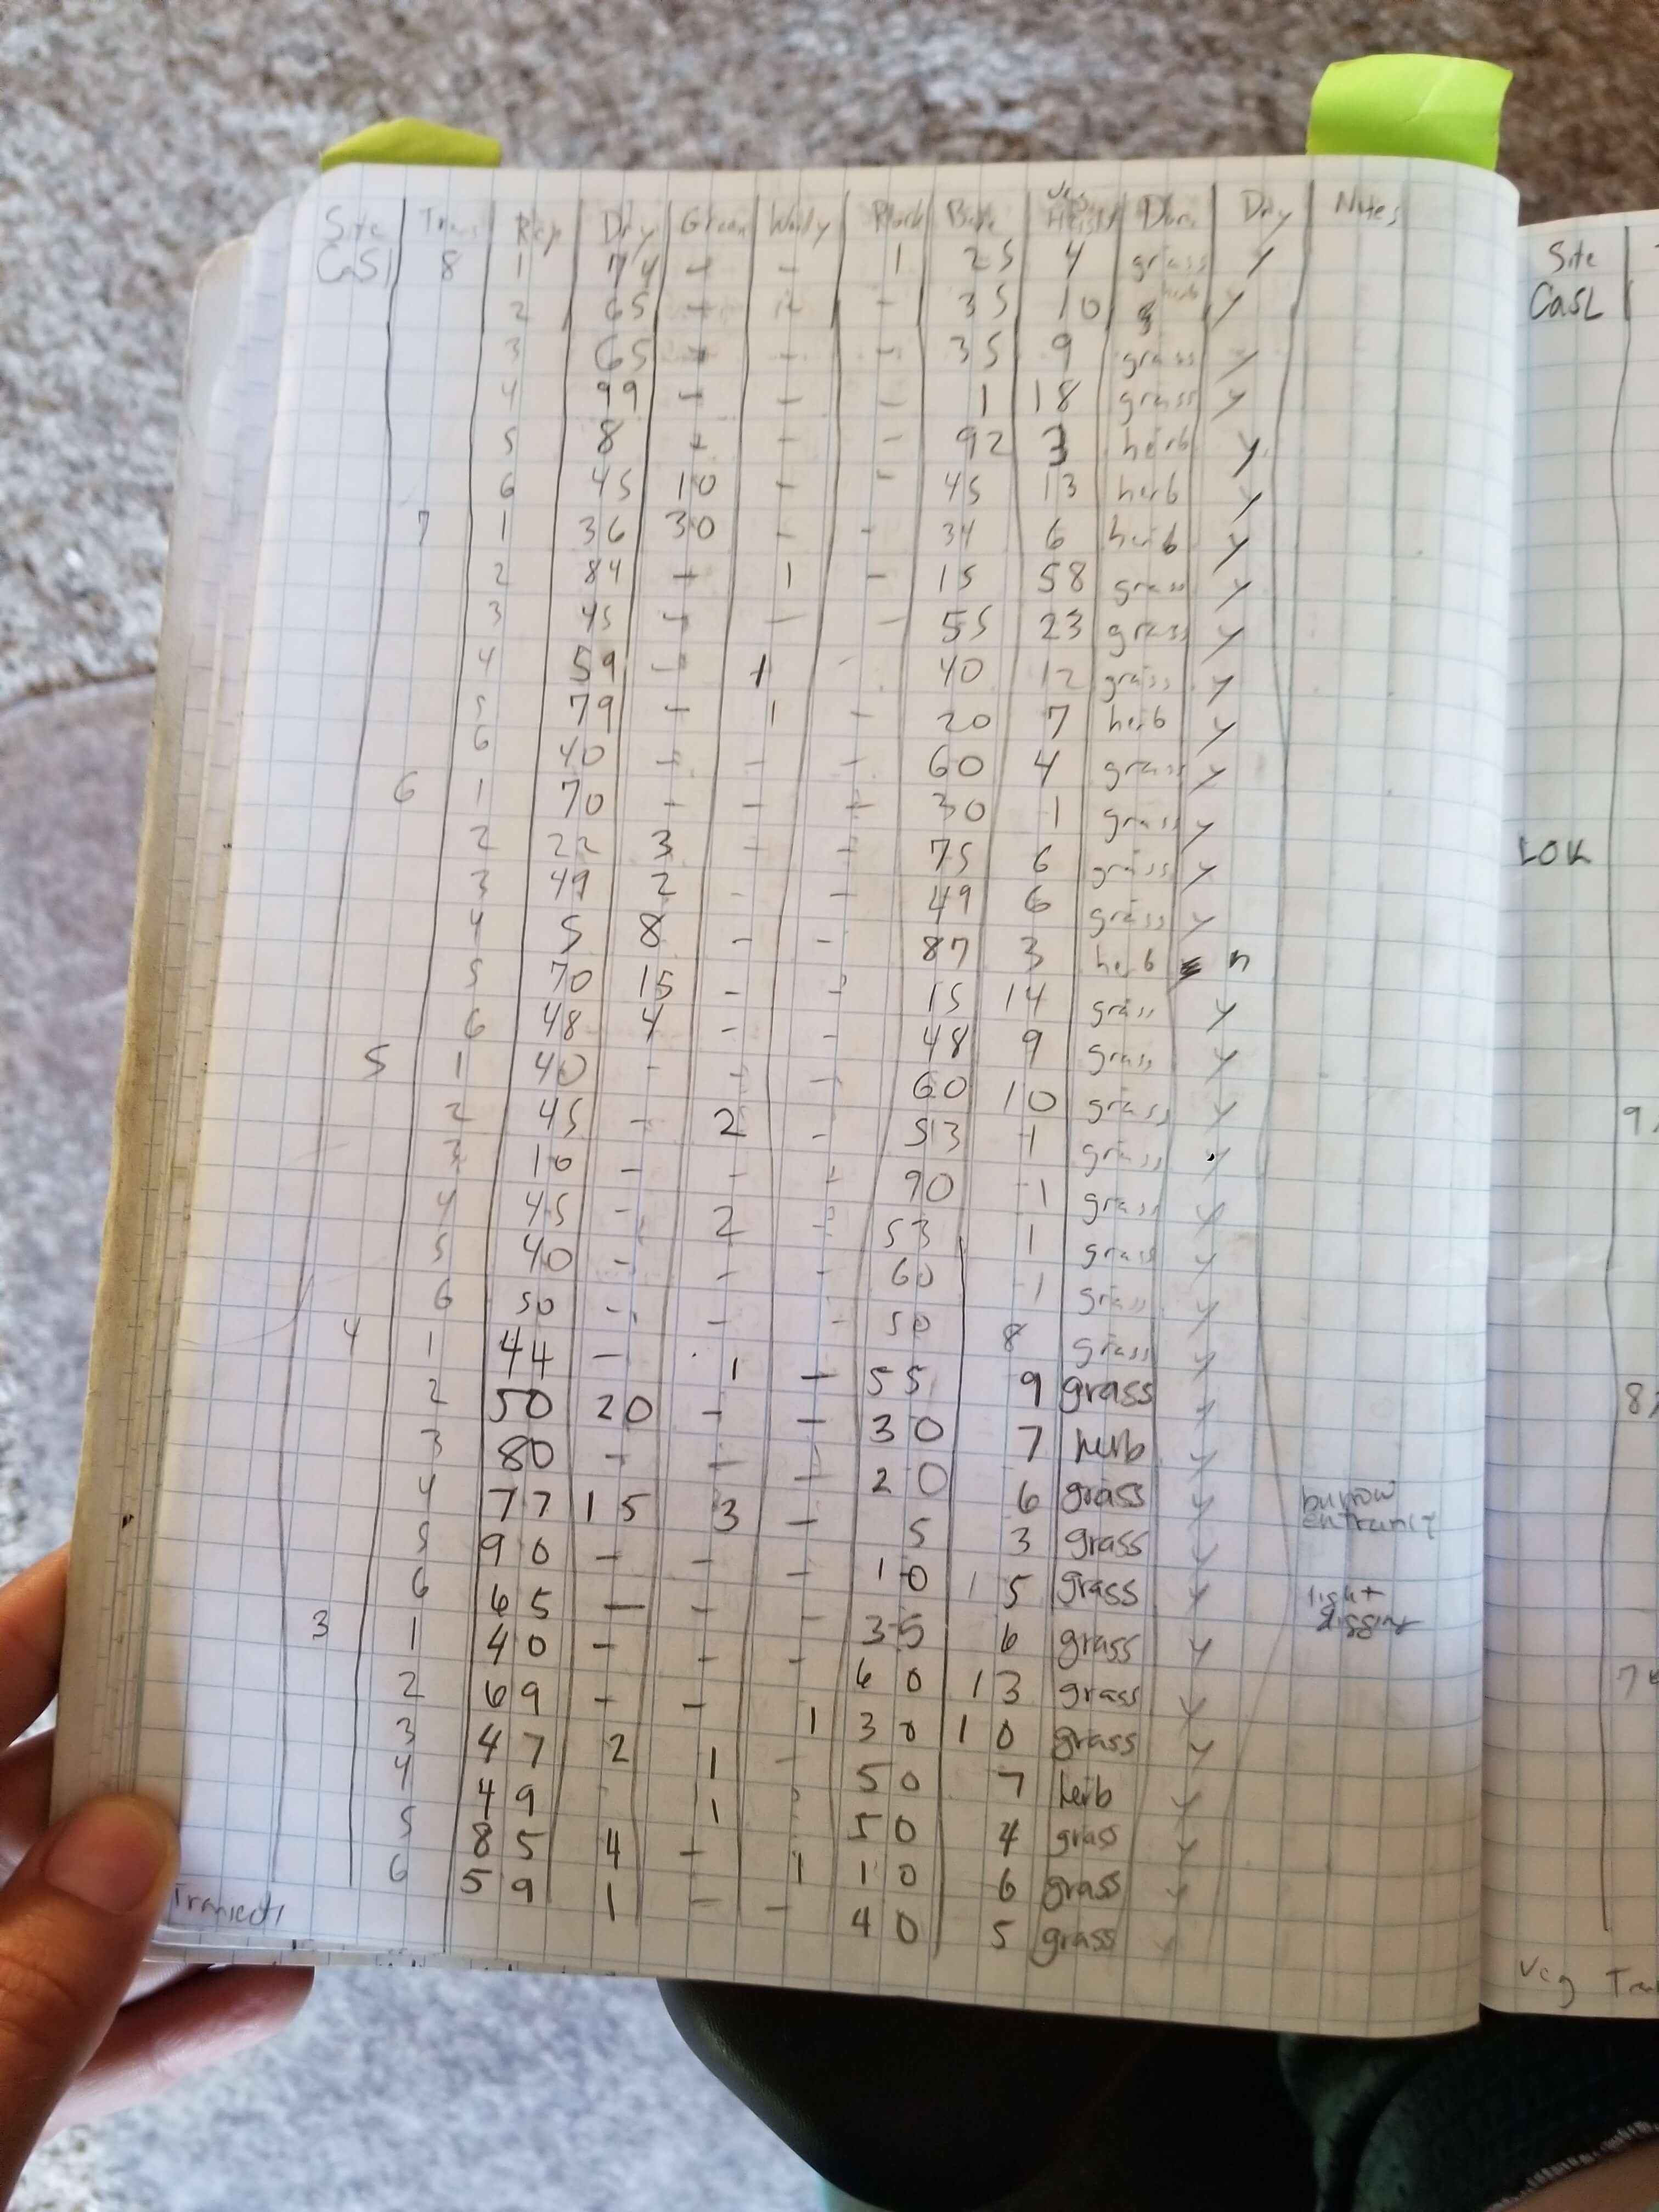 Site Trans Rep Dry Green Woody Rock Bare Veg Height Dom Dry Notes
CaSl 8 1 74 - - 1 25 4 grass y
2 65 - - - 35 10 herb y
3 65 - - - 35 9 grass y
4 99 - - - 1 18 grass y
5 8 - - - 92 3 herb y
6 45 10 - - 45 13 herb y
7 1 36 30 - - 34 6 herb y
2 84 - 1 - 15 58 grass y
3 45 - - - 55 23 grass y
4 59 - 1 - 40 12 grass y
5 79 - 1 - 20 7 herb y
6 40 - - - 60 4 grass y
6 1 70 - - - 30 1 grass y
2 22 3 - - 75 6 grass y
3 49 2 - - 49 6 grass y
4 5 8 - - 87 3 herb n
5 70 15 - - 15 14 grass y
6 48 4 - - 48 9 grass y
5 1 40 - - - 60 10 grass y
2 45 - 2 - 53 1 grass y
3 10 - - - 90 1 grass y
4 45 - 2 - 53 1 grass y
5 40 - - - 60 1 grass y
6 50 - - - 50 8 grass y
4 1 44 - 1 - 55 9 grass y
2 50 20 - - 30 7 herb y
3 80 - - - 20 6 grass y burrow entrance
4 77 15 3 - 5 3 grass y
5 90 - - - 10 15 grass y light digging
6 65 - - - 35 6 grass y
3 1 40 - - - 60 13 grass y
2 69 - - 1 30 10 grass y
3 47 2 1 - 50 7 herb y
4 49 - 1 - 50 4 grass y
5 85 4 - 1 10 6 grass y
6 59 1 - - 40 5 grass y
Transect
Site
CaSL
LOK
9
8
7
Veg